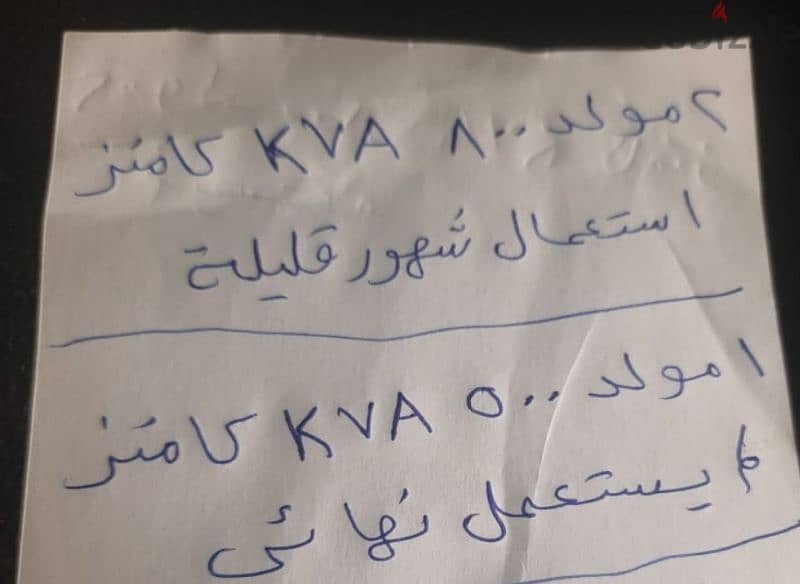 ٢ مولد ٨٠٠ KVA كامنز
استعمال شهور قليلة
١ مولد ٥٠٠ KVA كامنز
لم يستعمل نهائى